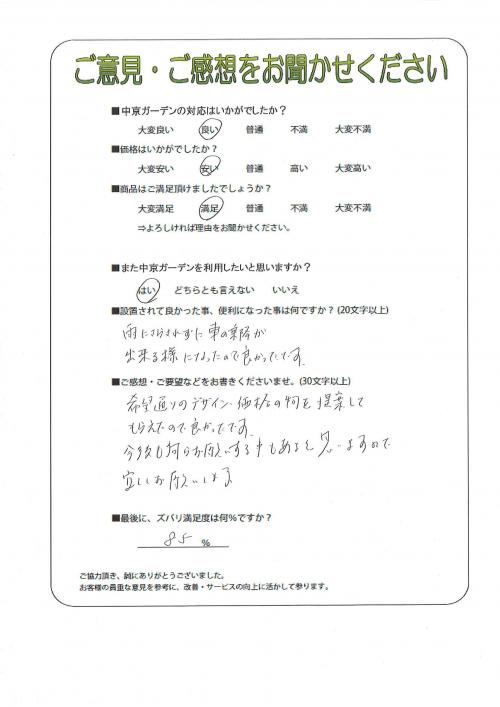 ご意見・ご感想をお聞かせください
■中京ガーデンの対応はいかがでしたか？
大変良い 良い 普通 不満 大変不満
■価格はいかがでしたか？
大変安い 安い 普通 高い 大変高い
■商品はご満足頂けましたでしょうか？
大変満足 満足 普通 不満 大変不満
⇒よろしければ理由をお聞かせください。
■また中京ガーデンを利用したいと思いますか？
はい どちらとも言えない いいえ
■設置されて良かった事、便利になった事は何ですか？(20文字以上)
雨にさらされずに車の乗降が
出来る様になったので良かったです。
■ご感想・ご要望などをお書きくださいませ。(30文字以上)
希望通りのデザイン・価格の物を提案して
もらえたので良かったです。
今後も何らお願いする事もあると思いますので
宜しくお願いします
■最後に、ズバリ満足度は何%ですか？
85 %
ご協力頂き、誠にありがとうございました。
お客様の貴重な意見を参考に、改善・サービスの向上に活かして参ります。